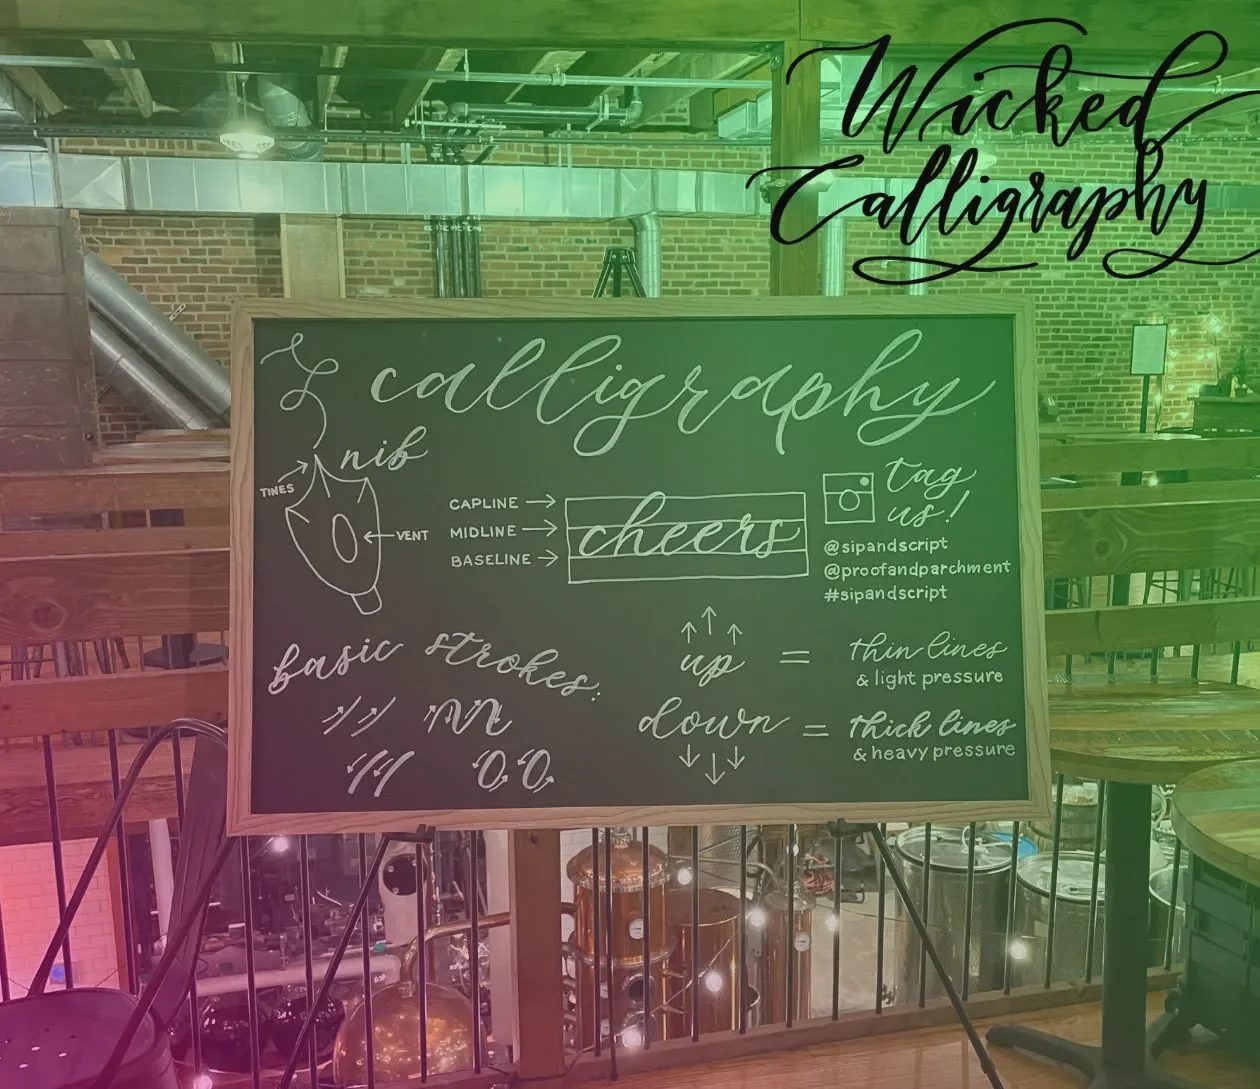 Wicked
Calligraphy
calligraphy
nib
TINES
VENT
CAPLINE →
MIDLINE →
BASELINE →
cheers
tag
us!
@sipandscript
@proofandparchment
#sipandscript
basic strokes:
up = thin lines
& light pressure
down = thick lines
& heavy pressure